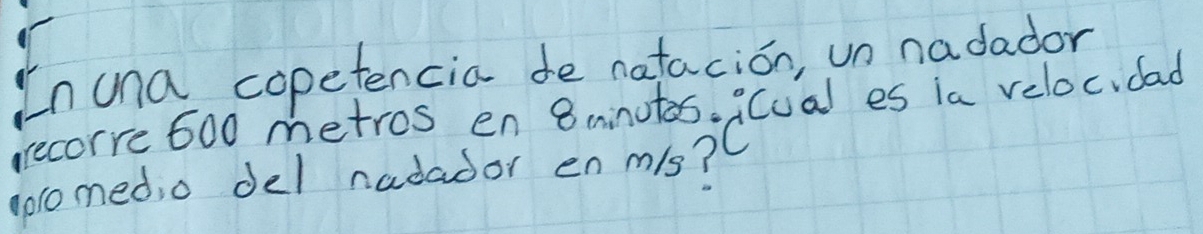 En una copetencia de natación, un nadador
recorre 600 metros en 8 minutos. ¿Cual es la velocidad
promedio del nadador en m/s?